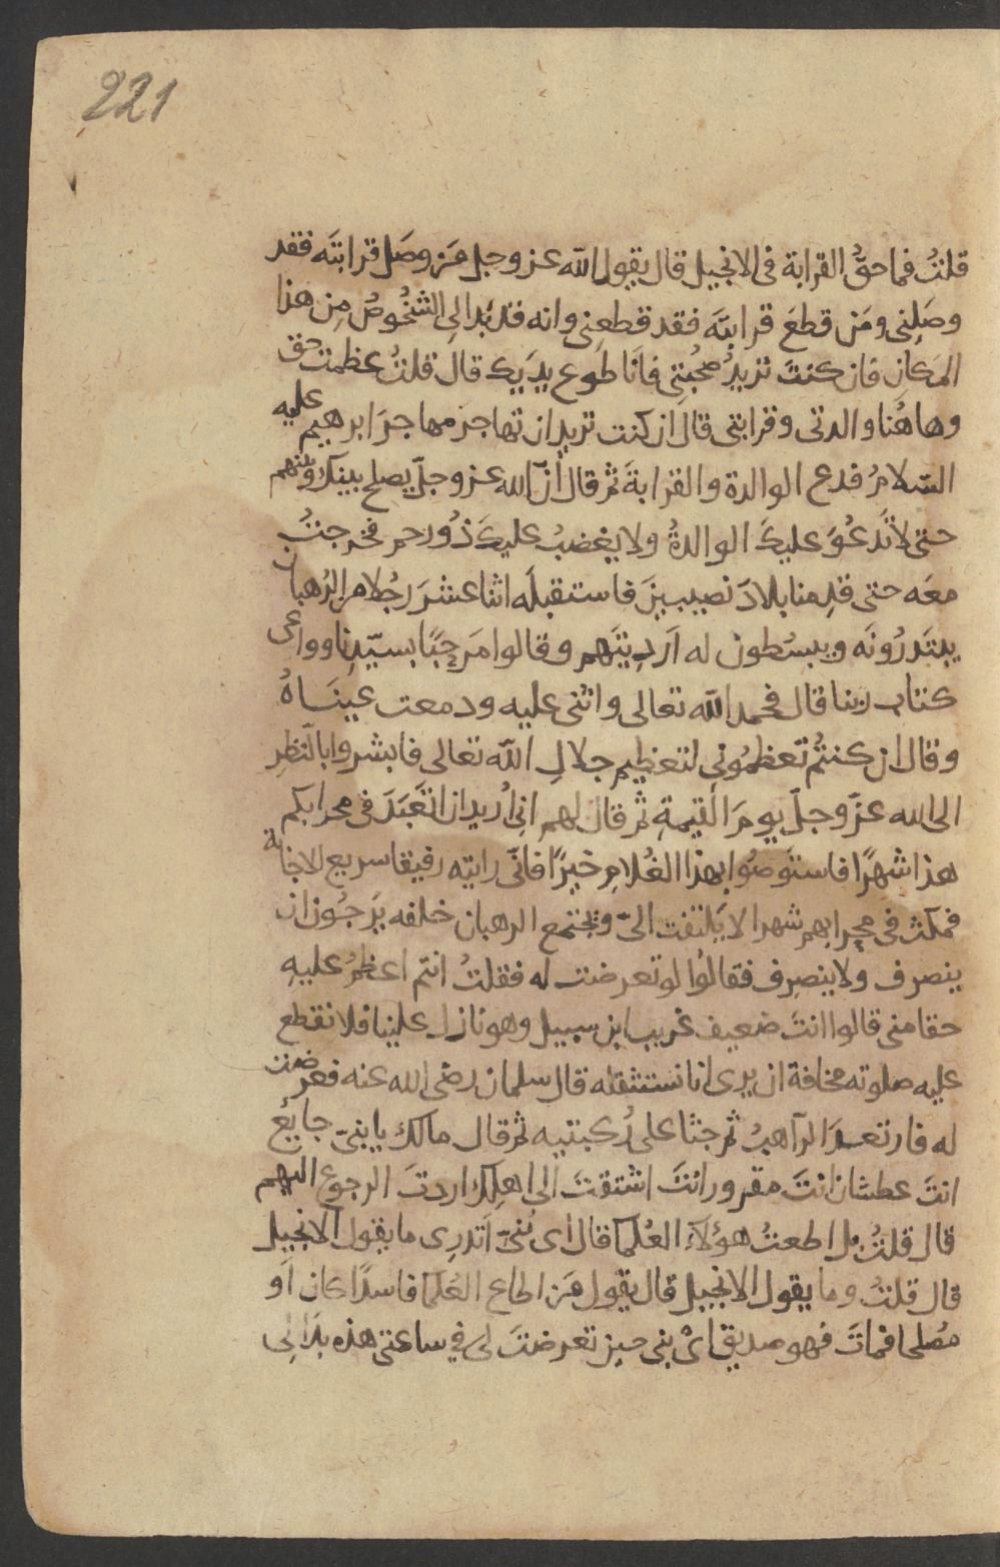 221
قلتُ فما حقُّ القرابة فى الانجيل قال يقول الله عز وجل مَن وصَل قرابتَه فقد
وصَلِنى ومَن قطعَ قرابتَه فقد قطعِنى وانه قد بَدا لِى الشخُوصُ مِن هذا
المَكانِ فان كنتَ تريدُ صُحبَتِى فانَا طوع يدَيك قال قلتُ عظمت حق
وهاهُنا والدتى وقرابتى قال ان كنت تريد ان تهاجر مهاجرَ ابرهيم عليه
السّلامُ فدع الوالدة والقرابةَ ثم قال انّ الله عز وجلّ يصلح بينَك وبينهم
حتى لا تَدعُوَ عليكَ الوالدةُ ولا يغضبُ عليكَ ذُو رحم فخرجتُ
معَه حتى قدِمنا بلادَ نصيبينَ فاستقبلَه اثنا عشَرَ رجُلا من الرُهبان
يبتَدرُونَه ويبسُطون له اَرديتَهم وقالوا مَرحبًا بسيّدِنا وواعى
كتاب ربنا قال فحمد الله تعالى واثنى عليه ودمعت عينَاهُ
وقال ان كنتُم تعَظمُونى لتعظيم جلالِ الله تعالى فابشروا بالنّظرِ
الى الله عزّ وجلّ يومَ القيمةِ ثم قال لهم انِى اُريد ان اتعَبّدَ فى محرابكم
هذا شهرًا فاستَوصُوا بهذا الغُلامِ خيرًا فانّى رايته رفيقا سريع الاجابة
فمكث فى محرابهم شهرا لا يَلتفت الىّ ويجتمع الرهبان خلفه يَرجُوز ان
ينصرف ولا ينصِرف فقالُوا لو تعرضت له فقلتُ انتم اعظمُ عليهِ
حقا منى قالوا انتَ ضعيف غريب ابن سبيل وهو نازل علينا فلا نقطع
عليه صلوته مخافة ان يرى انا نستثقله قال سلمان رضى الله عنه فعرضت
له فارتعدَ الراهبُ ثم جثا على رُكبتيه ثم قال مالك يا بنىّ جايع
انتَ عطشان انتَ مقرور انتَ اشتقتَ الى اهلِك اردتَ الرجوع اليهم
قال قلتُ بل اطعتُ هؤلآء العُلما قال اى بُنىّ اَتدرِى ما يقول الانجيل
قال قلتُ وما يقول الانجيل قال يقول مَن اطاع العُلما فاسدًا كان اَو
مُصلحا فماتَ فهو صديق اىْ بنى حين تعرضتَ لى فى ساعتى هذه بدَا لِى